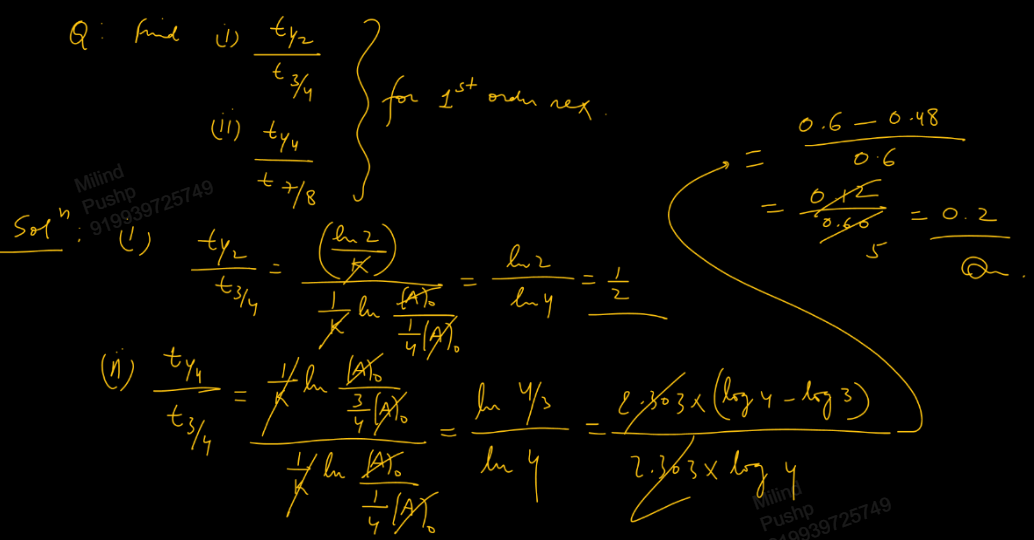 Q: Find (i) t1/2 / t3/4
(ii) t1/4 / t7/8
} for 1st order rex.
Milind
Pushp
919939725749
Solⁿ: (i) t1/2 / t3/4 = (ln2/K) / (1/K ln (A)₀ / (1/4 (A)₀)) = ln2 / ln4 = 1/2
(ii) t1/4 / t3/4 = (1/K ln (A)₀ / (3/4 (A)₀)) / (1/K ln (A)₀ / (1/4 (A)₀)) = ln 4/3 / ln 4 = 2.303 × (log 4 – log 3) / 2.303 × log 4
= (0.6 – 0.48) / 0.6
= 0.12 / 0.60 5 = 0.2
Milind
Pushp
919939725749